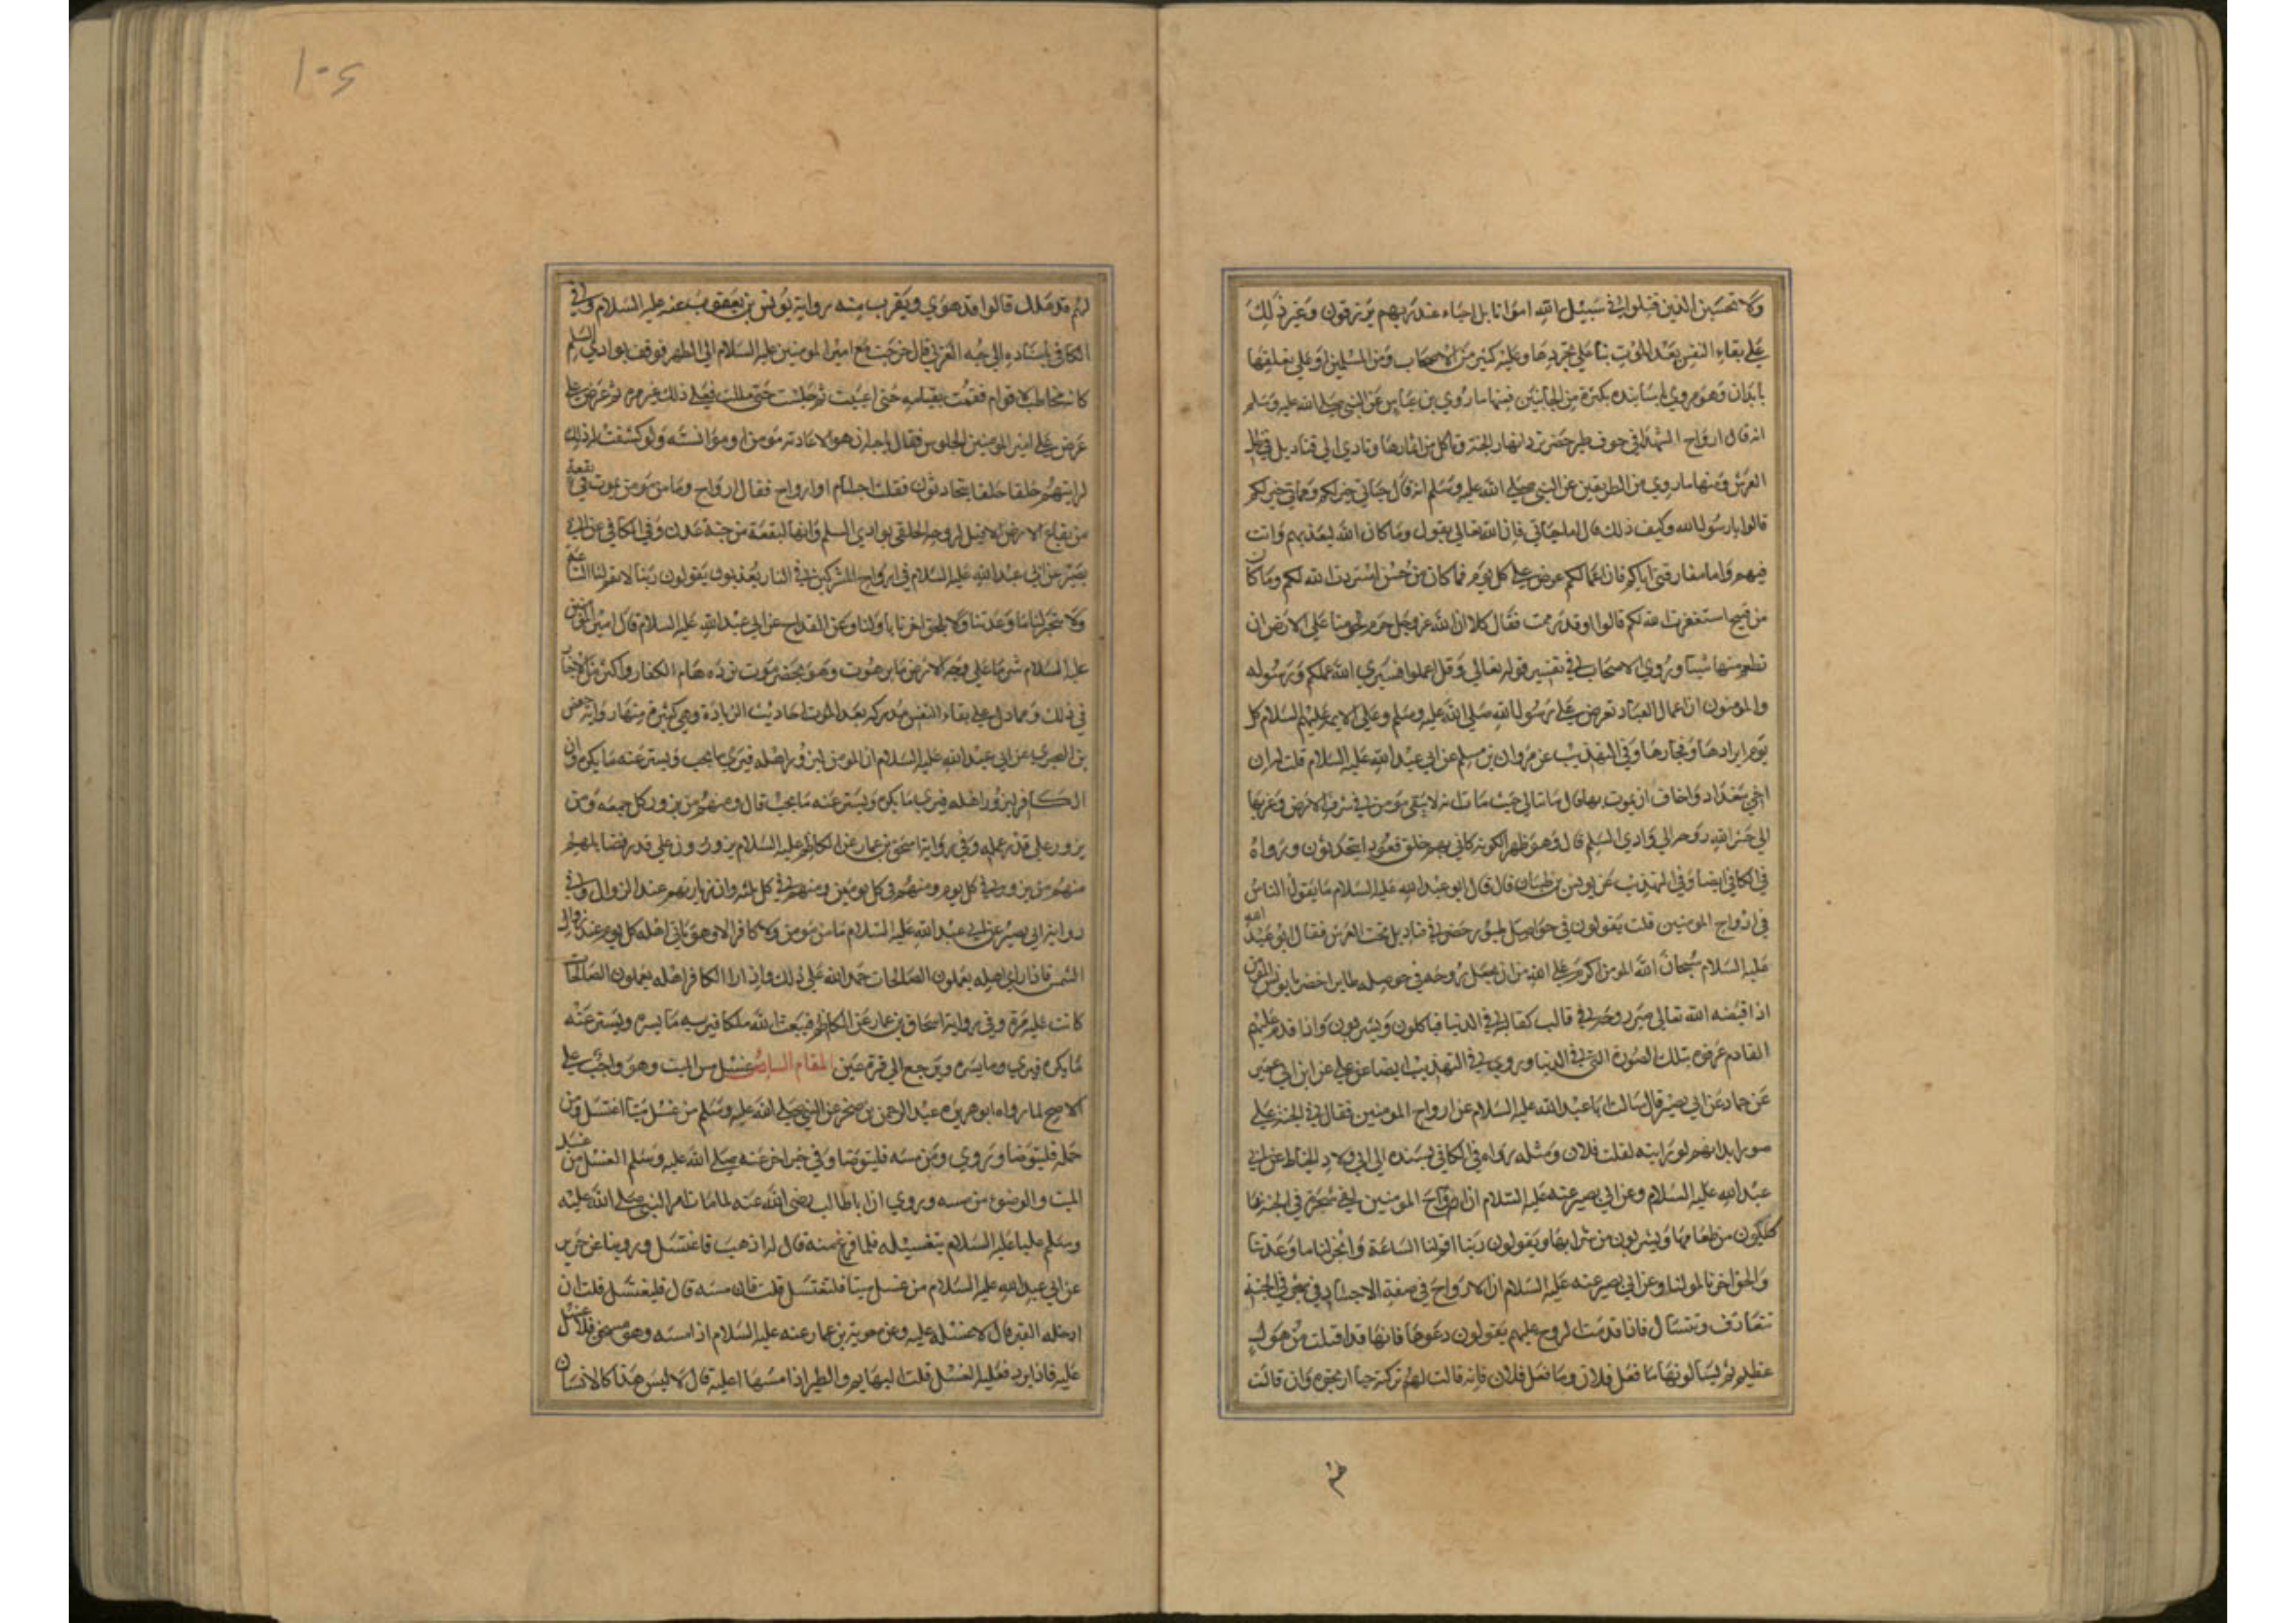 ولا تحسبن الذين قتلوا في سبيل الله امواتا بل احياء عند ربهم يرزقون وغير ذلك
على بقاء النفس بعد الموت بناء على تجردها وعليه كثير من الاصحاب ومن المسلمين او على تعلقها
بابدان وهو مروي باسانيده بكثرة من الجانبين فمنها ما روي بن عباس عن النبي صلى الله عليه وسلم
انه قال ارواح الشهدا في جوف طير خضر ترد انهار الجنة وتاكل من اثمارها وتاوي الى قناديل في ظل
العرش ومنها ما روي من الطريقين عن النبي صلى الله عليه وسلم انه قال حياتي خير لكم ومماتي خير لكم
قالوا يا رسول الله وكيف ذلك قال اما حياتي فان الله تعالى يقول وما كان الله ليعذبهم وانت
فيهم واما مفارقتي اياكم فان اعمالكم تعرض علي كل يوم فما كان من حسن استزدت الله لكم وما كان
من قبيح استغفرت الله لكم قالوا وقد رممت فقال كلا ان الله عز وجل حرم لحومنا على الارض ان
تطعم منها شيئا وروي الاصحاب في تفسير قوله تعالى وقل اعملوا فسيري الله عملكم ورسوله
والمومنون ان اعمال العباد تعرض على رسول الله صلى الله عليه وسلم وعلى الايمة عليهم السلام كل
يوم ابرارها وفجارها وفي التهذيب عن مروان بن مسلم عن ابي عبد الله عليه السلام قلت له ان
اخي ببغداد واخاف ان يموت بها قال ما تبالي حيث مات انه لا يبقي مومن في شرق الارض وغربها
الى حشر الله روحه الي وادي السلم قال وهو ظهر الكوفة كاني بهم حلق قعود يتحدثون ورواه
في الكافي ايضا وفي التهذيب عن يونس بن ظبيان قال قال ابو عبد الله عليه السلام ما يقول الناس
في ارواح المومنين قلت يقولون في حواصل طيور خضر في قناديل تحت العرش فقال ابو عبد الله
عليه السلام سبحان الله المومن اكرم على الله من ان يجعل روحه في حوصله طاير اخضر يا يونس المومن
اذا قبضه الله تعالى صير روحه في قالب كقالبه في الدنيا فياكلون ويشربون واذا قدم عليهم
القادم عرفوه بتلك الصورة التي في الدنيا وروي في التهذيب ايضا عن علي عن ابن ابي عمير
عن حماد عن ابي بصير قال سالت ابا عبد الله عليه السلام عن ارواح المومنين فقال في الجنة على
صور ابدانهم لو رايته لقلت فلان ومثله رواه في الكافي بسنده الي ابي ولاد الحناط عن ابي
عبد الله عليه السلام وعن ابي بصير عنه عليه السلام ان ارواح المومنين لفي شجرة في الجنة
ياكلون من طعامها ويشربون من شرابها ويقولون ربنا اقم لنا الساعة وانجز لنا ما وعدتنا
والحق اخرنا باولنا وعن ابي بصير عنه عليه السلام ان الارواح في صفة الاجساد في شجر في الجنة
تتعارف وتتسال فاذا قدمت الروح عليهم يقولون دعوها فانها قد اقبلت من هول
عظيم ثم يسالونها ما فعل فلان وما فعل فلان فانه قالت لهم تركته حيا ارتجوه وان قالت
لهم
١٠٤
لهم قد هلك قالوا قد هوي ويقرب منه رواية يونس بن يعقوب عنه عليه السلام وفي
الكافي باسناده الى حبه العرني قال خرجت مع امير المومنين عليه السلام الى الظهر فوقف بوادي السلم
كانه مخاطب لاقوام فقمت بقيامه حتى اعييت ثم جلست حتى مللت فعل ذلك غير مرة ثم عرض علي
عرض على امير المومنين الجلوس فقال يا حبه ان هو الا محادثه مومن او موانسته ولو كشفت لك
لرايتهم حلقا حلقا يتحادثون فقلت اجسام او ارواح فقال ارواح وما من مومن يموت في بقعة
من بقاع الارض الا قيل لروحه الحقي بوادي السلم وانها لبقعة من جنة عدن وفي الكافي عن ابي
بصير عن ابي عبد الله عليه السلام في ارواح المشركين في النار يعذبون يقولون ربنا لا تقم لنا الساعة
ولا تنجز لنا ما وعدتنا ولا تلحق اخرنا باولنا وعن القداح عن ابي عبد الله عليه السلام قال امير المومنين
عليه السلام شر ما على وجه الارض ماء برهوت وهو بحضرموت ترده هام الكفار واكثر من الاخبار
في ذلك ومما دل على بقاء النفس مدركه بعد الموت احاديث الزيادة وهي كثيرة منها رواية حفص
بن البختري عن ابي عبد الله عليه السلام ان المومن ليزور اهله فيري ما يحب ويستر عنه ما يكره وان
الكافر ليزور اهله فيري ما يكره ويستر عنه ما يحب قال ومنهم من يزور كل جمعة ومن
يزور على قدر عمله وفي رواية اسحق بن عمار عن الكاظم عليه السلام يزورون على قدر فضايلهم
منهم من يزور في كل يوم ومنهم في كل يومين ومنهم في كل ثلثه وان زيارتهم عند الزوال وفي
رواية ابي بصير عن ابي عبد الله عليه السلام ما من مومن ولا كافر الا وهو ياتي اهله كل يوم عند زوال
الشمس فاذا راي اهله يعملون الصالحات حمد الله على ذلك واذا را الكافر اهله يعملون الصالحات
كانت عليه حسرة وفي رواية اسحاق بن عمار عن الكاظم فيبعث الله ملكا فيريه ما يسره ويستر عنه
ما يكره فيري وما يسره ويرجع الى قرة عين المقام السادس غسل مس الميت وهو واجب على
الاصح لما رواه ابو هريره عبد الرحمن بن صخر عن النبي صلى الله عليه وسلم من غسل ميتا اغتسل ومن
حمله فليتوضا ويروي ومن مسه فليتوضا وفي خبر اخر عنه صلى الله عليه وسلم الغسل من غسل
الميت والوضوء من مسه وروي ان ابا طالب رضي الله عنه لما مات امر النبي صلى الله عليه
وسلم عليا عليه السلام بتغسيله فلما فرغ منه قال له اذهب فاغتسل وروينا عن حريز
عن ابي عبد الله عليه السلام من غسل ميتا فلتغتسل قلت فان مسه قال فليغتسل قلت ان
ادخله القبر قال لا غسل عليه وعن معوية بن عمار عنه عليه السلام اذا مسه وهو سخن فلا غسل
عليه فاذا برد فعليه الغسل قلت البهايم والطير اذا مسها اعليه قال لا ليس هذا كالانسان